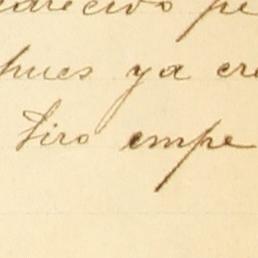 arecido pe
pues ya cre
tiro empe